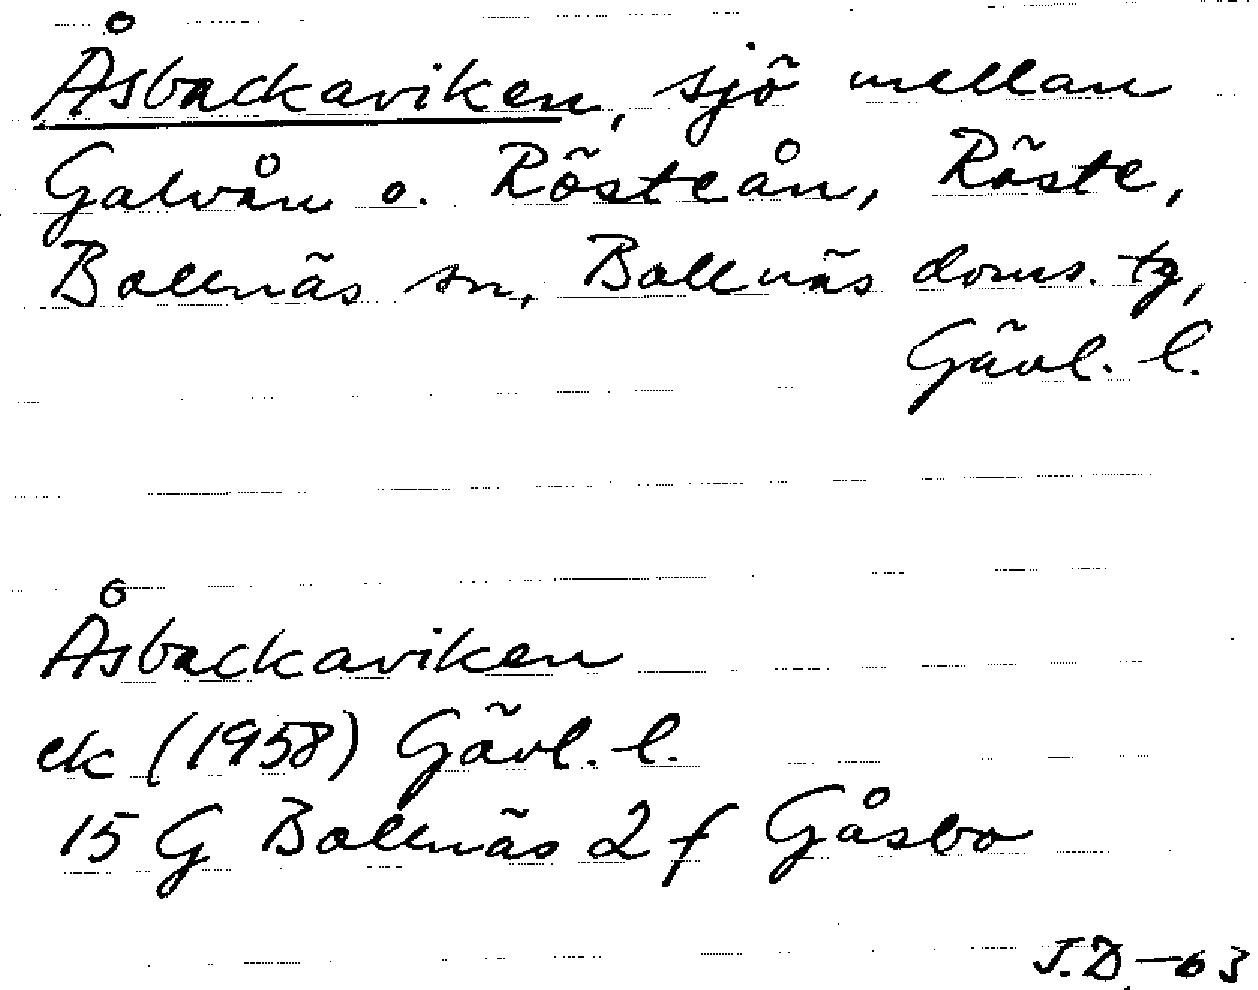 Åsbackaviken, sjö mellan
Galvån o. Rösteån, Röste,
Bollnäs sn, Bollnäs doms. tg,
Gävl. l.
Åsbackaviken
ek (1958) Gävl. l.
15 G Bollnäs 2 f Gåsbo
J.D. -63